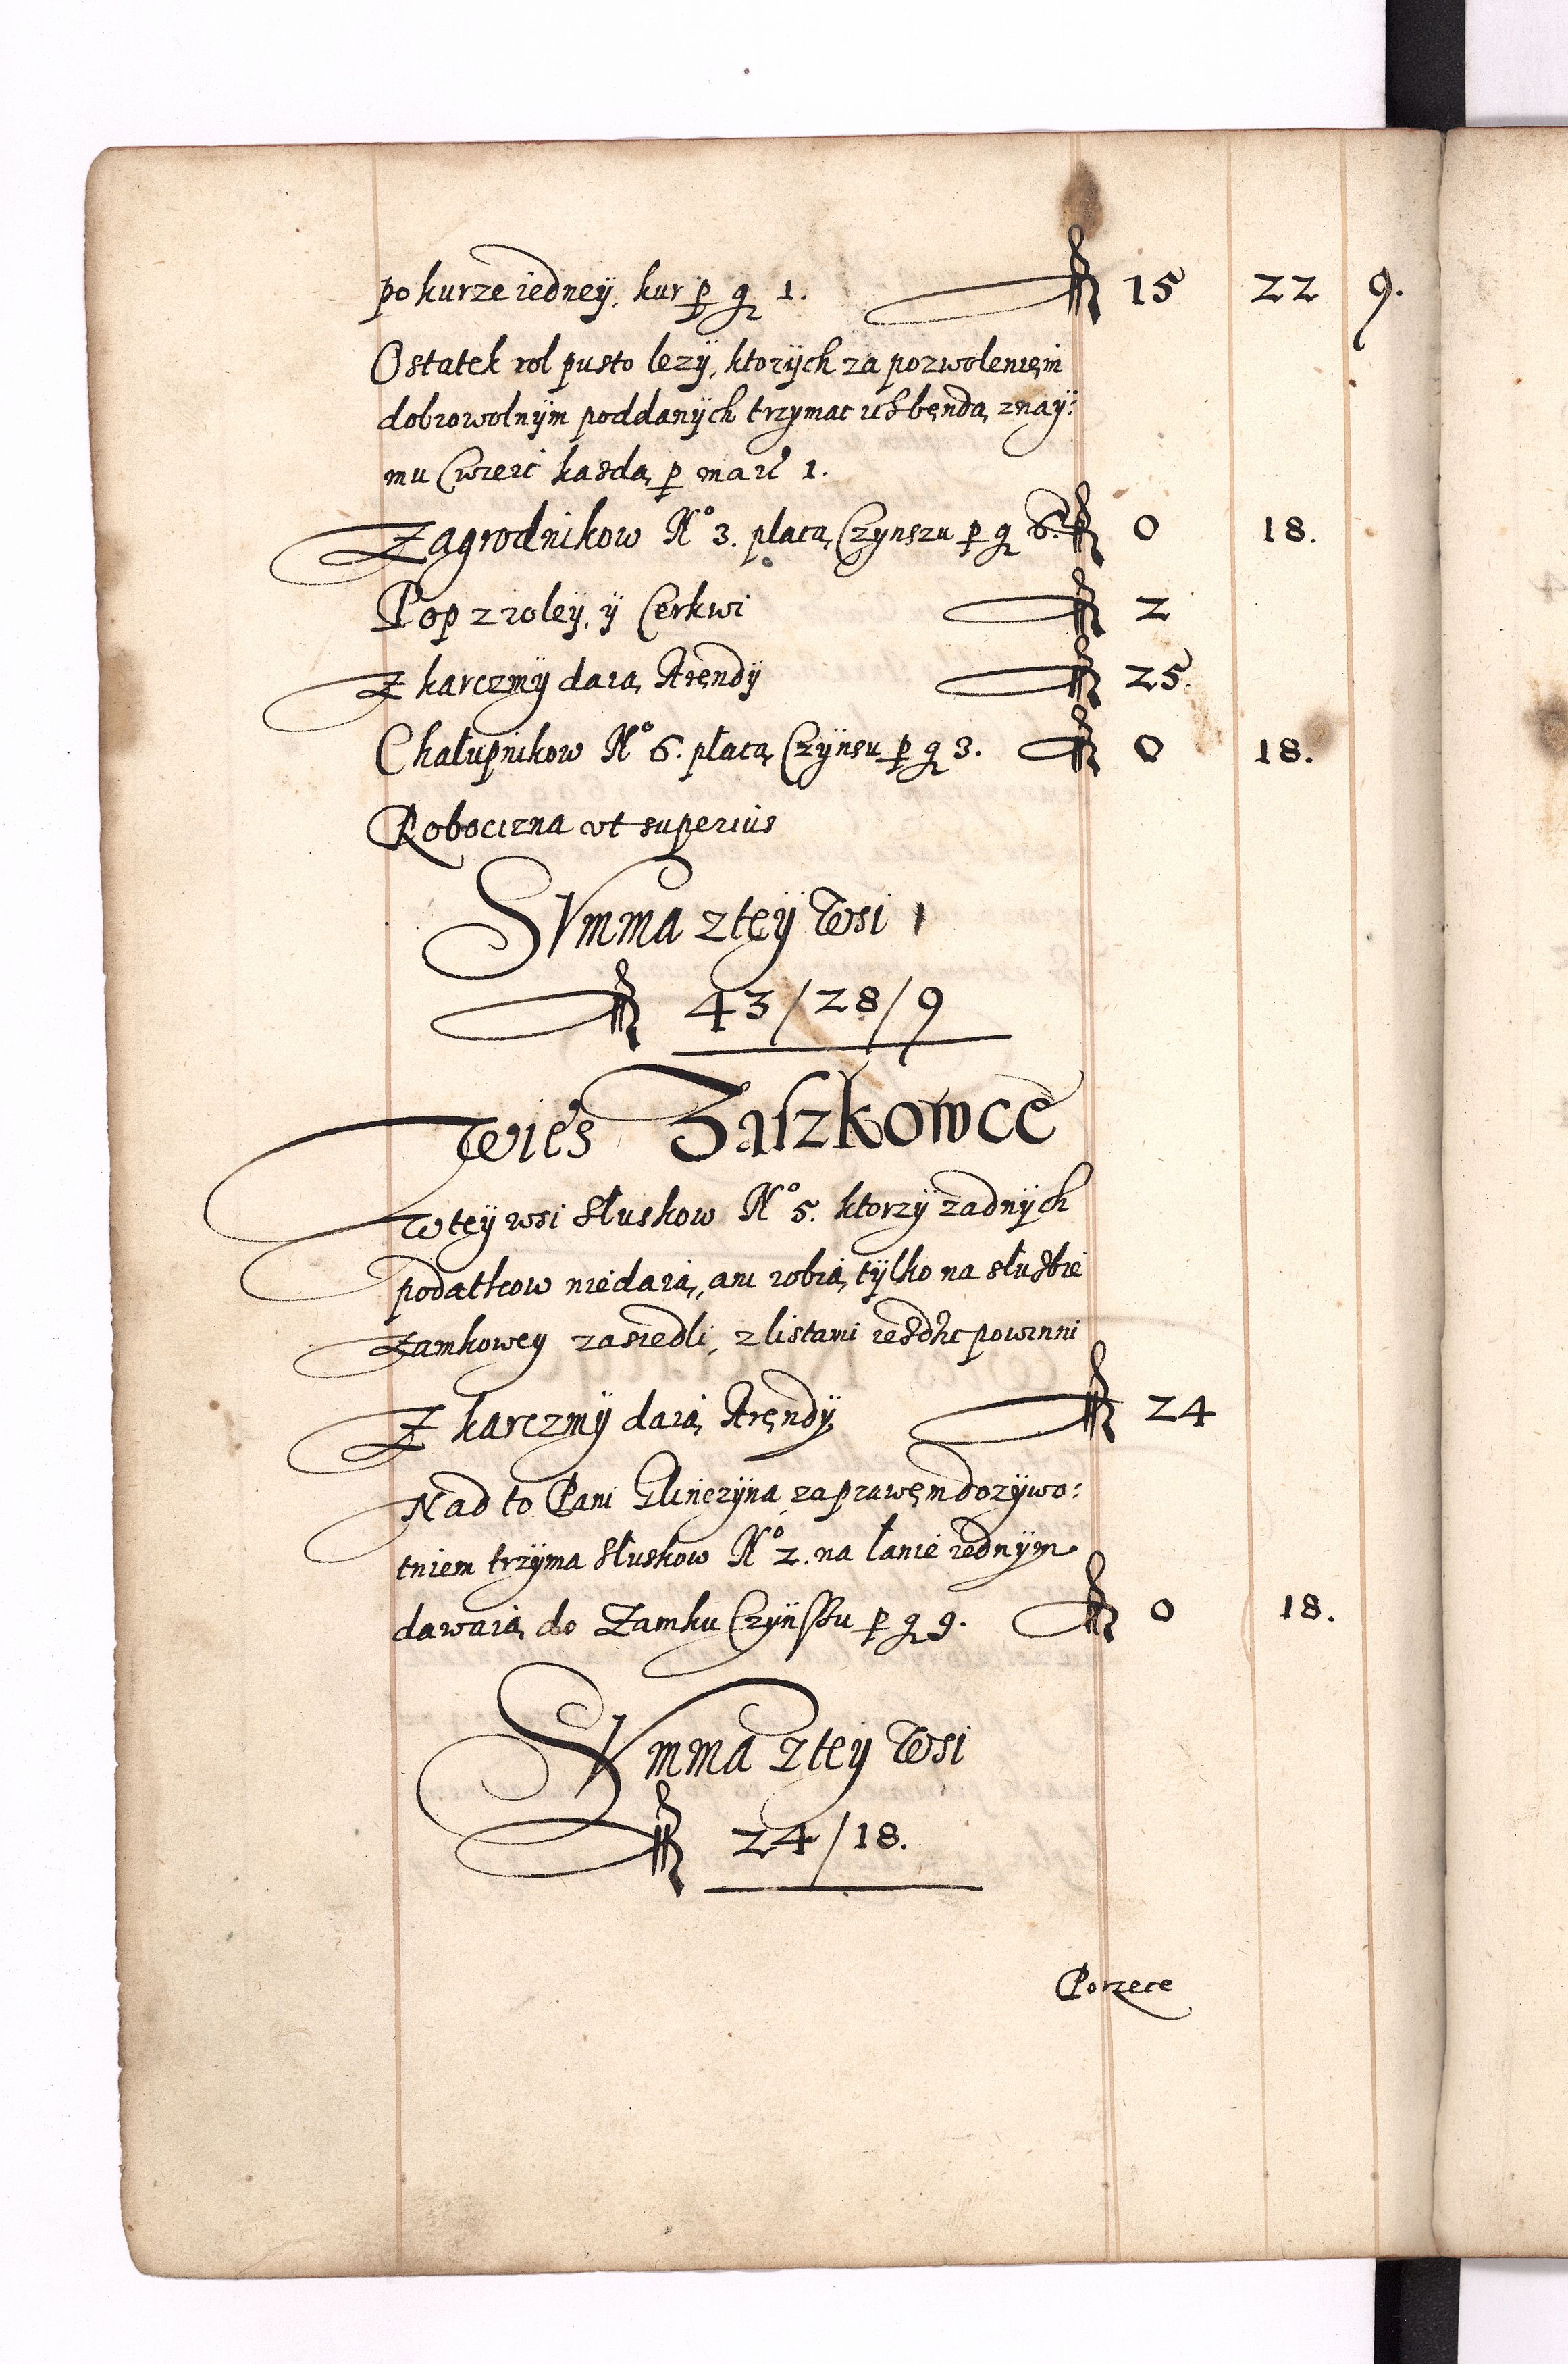 po kurze iedneÿ, kur p g 1. fl 15 22 9.
Ostatek rol pusto lezÿ, ktorÿch za pozwolenięm
dobrowolnÿm poddanÿch trzymac bęndą znaÿ:
mu Cwierc kazdą p mar 1.
Zagrodnikow No 3. płacą Czynszu p g 6. fl 0 18.
Pop z roleÿ, ÿ Cerkwi fl 2
Z karczmÿ daią Aręndÿ fl 25.
Chałupnikow No 6. płacą Czÿnsu p g 3. fl 0 18.
Robocizna vt superius
SVmma z teÿ Wsi
fl 43/28/9
Wies Ziszkowce
W teÿ wsi Służkow No 5. ktorzÿ zadnÿch
podatkow niedaią, ani robią, tÿlko na słuzbie
Zamkoweÿ zasiedli, z listami iezdzic powinni
Z karczmÿ daią Aręndÿ fl 24
Nad to Pani Glinczÿna, za prawęm dozÿwo:
tniem trzÿma Służkow No 2. na łanie iednÿm
dawaią do Zamku Czÿnszu p g 9. fl 0 18.
SVmma z teÿ Wsi
fl 24/18.
Porzece